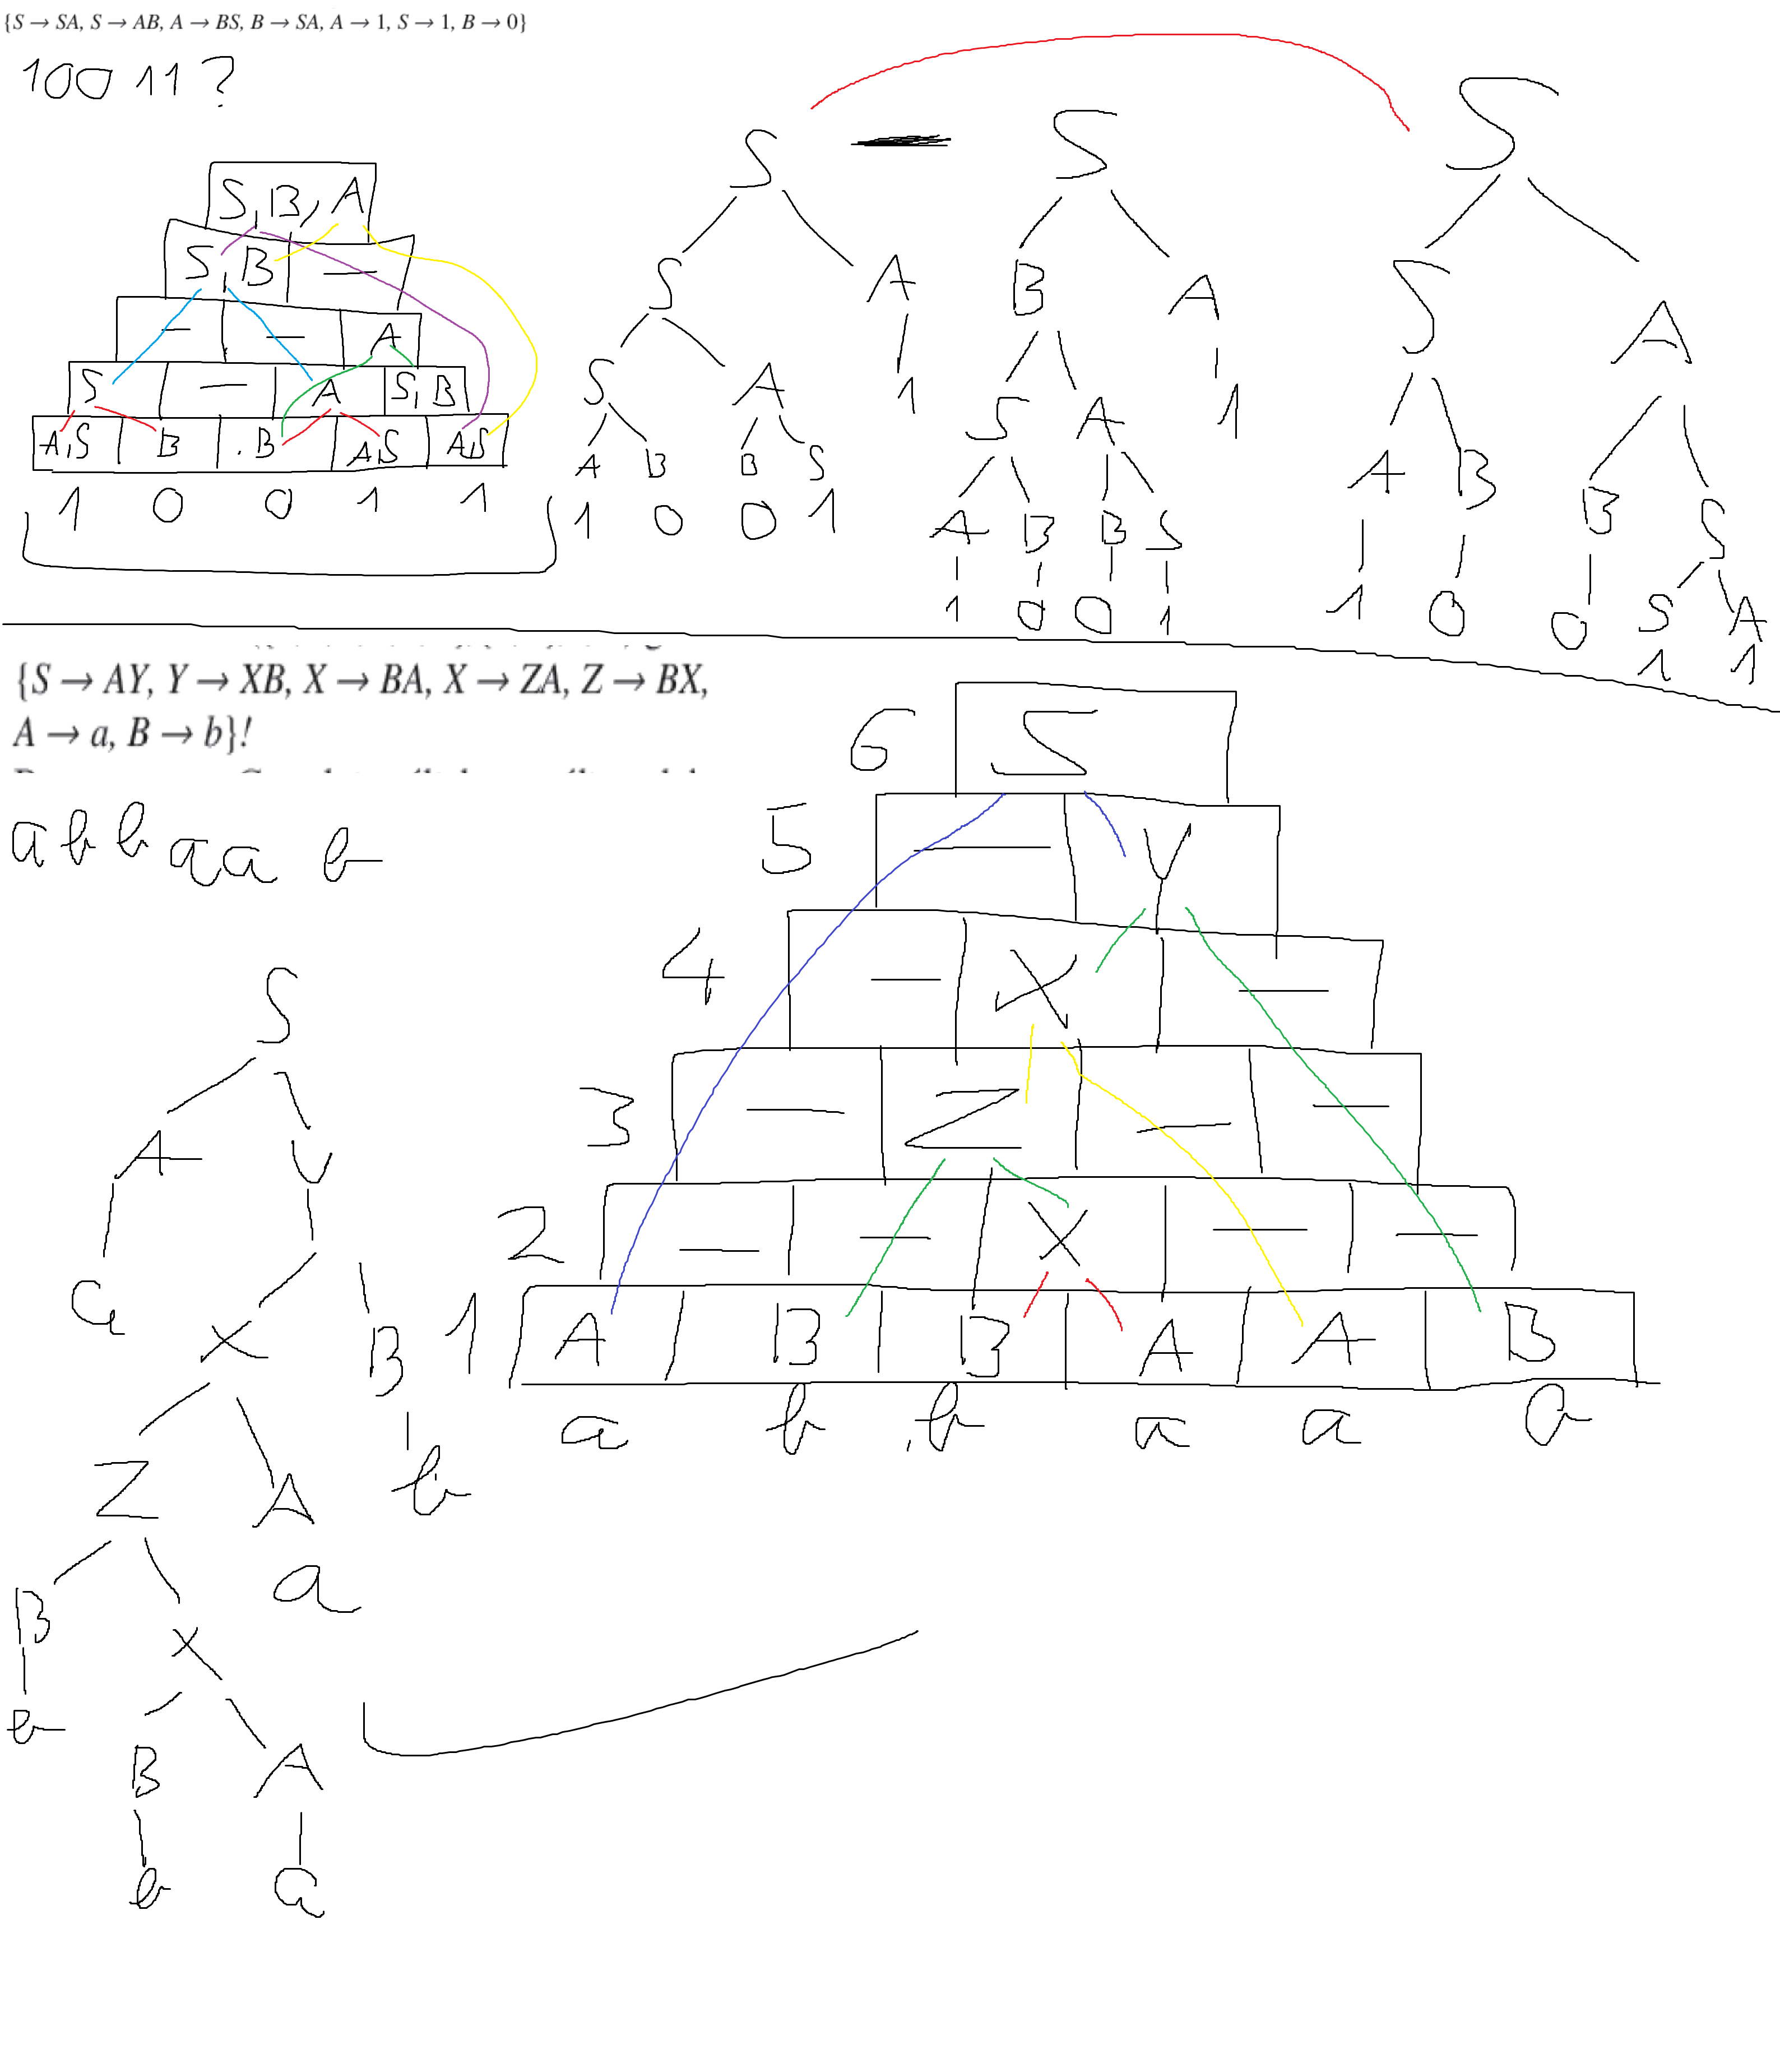 {S → SA, S → AB, A → BS, B → SA, A → 1, S → 1, B → 0}
10011?
S, B, A
S, B —
— — A
S — A S, B
A,S B B A,S A,S
1 0 0 1 1
S
S A
S A 1
A B B S
1 0 0 1
S
B A
S A 1
A B B S
1 0 0 1
S
S A
A B B S
1 0 0 S A
1 1
{S → AY, Y → XB, X → BA, X → ZA, Z → BX,
A → a, B → b}!
abbaab
S
A Y
a
X B
Z A b
B X a
b B A
b a
6 S
5 — Y
4 — X —
3 — Z — —
2 — — X — —
1 A B B A A B
a b b a a b